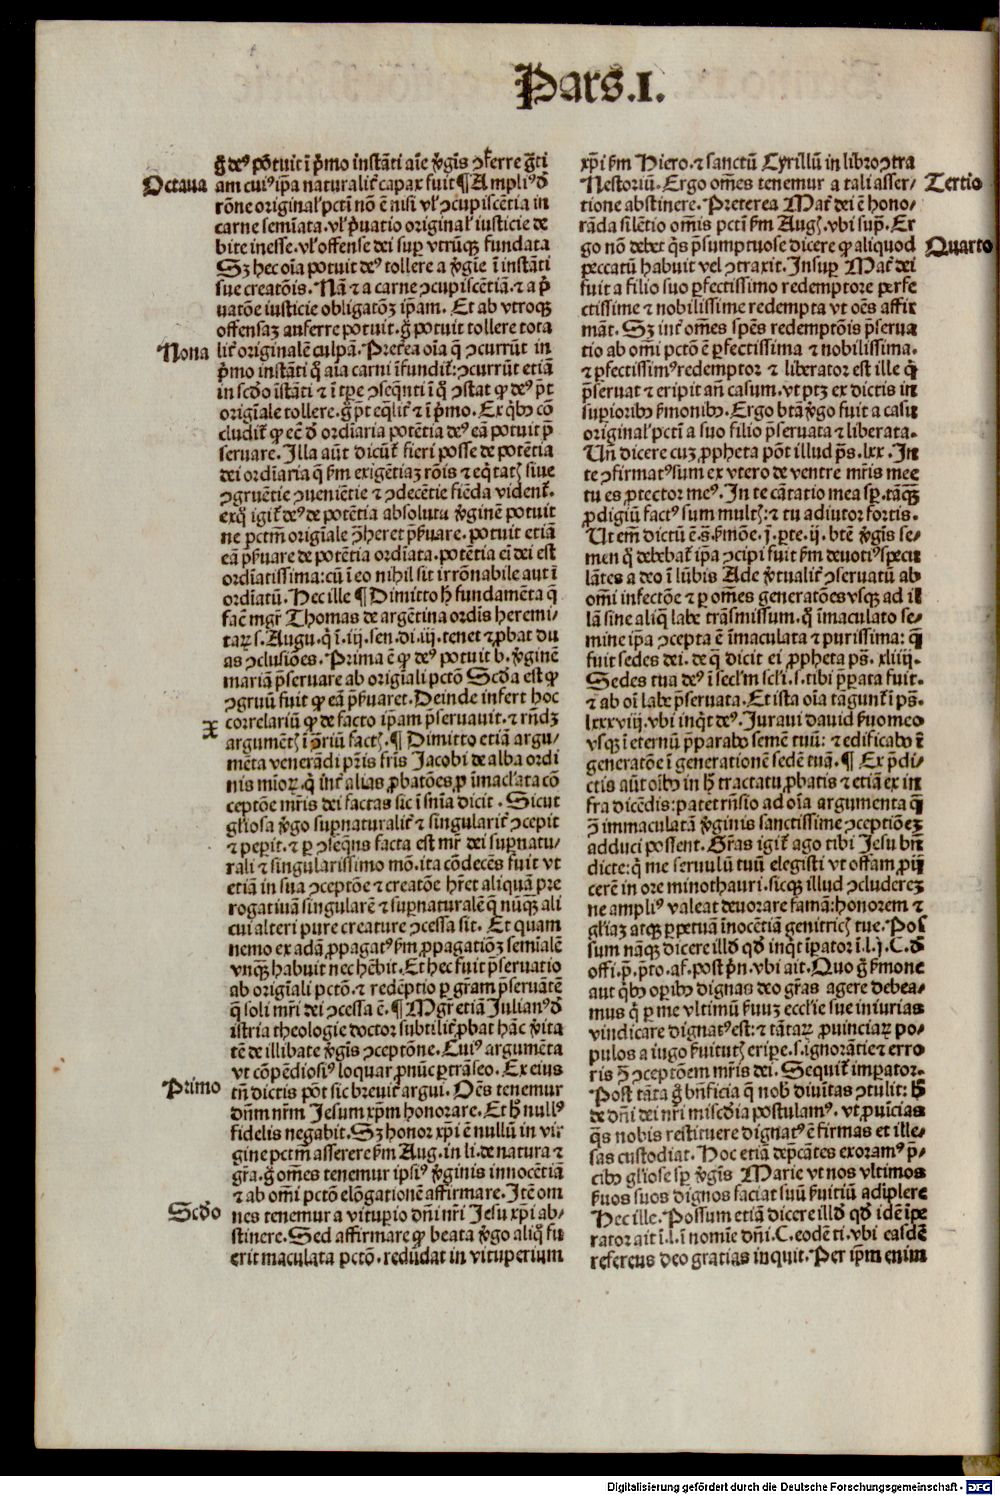 Pars.I.
g̃ deꝰ potuit ī p̃mo instãti aĩe ꝟgĩs ꝯferre gr̃ti
Octaua
am cuiꝰ ip̃a naturalit̃ capax fuit ¶ Ampliꝰ đ
rõne original̃ pctĩ nõ ē nisi vl̃ ꝯcupiscẽtia in
carne semĩata. vl̃ p̃uatio original̃ iusticie de
bite inesse. vl̃ offense dei suꝑ vtrũqꝫ fundata
Sꝫ hec oĩa potuit deꝰ tollere a ꝟgĩe ī instãti
sue creatõis. Nã ⁊ a carne ꝯcupiscẽtiã. ⁊ a p̃
uatõe iusticie obligatõꝫ ip̃am. Et ab vtroqꝫ
offensaꝫ auferre potuit. g̃ potuit tollere tota
Nona
lit̃ originalē culpã. Pret̃ea oĩa q̃ ꝯcurrũt in
p̃mo instãti q̃ aĩa carni ĩfundit̃: ꝯcurrũt etiã
in scđo ĩstãti ⁊ ī tp̃e ꝯseq̃nti ī q̃ ꝯstat ꝙ deꝰ p̃t
origĩale tollere. g̃ p̃t eq̃lit̃ ⁊ ī p̃mo. Ex q̃bꝰ cõ
cludit̃ ꝙ ec̃ đ ordĩaria potẽtia deꝰ eã potuit p̃
seruare. Illa aũt dicũt̃ fieri posse de potẽtia
dei ordĩaria q̃ ẜm exigẽtiaꝫ rõis ⁊ eq̃tatꝭ siue
ꝯgruẽtie ꝯueniẽtie ⁊ ꝯdecẽtie fiẽda vident̃.
exq̃ igit̃ deꝰ de potẽtia absoluta ꝟginē potuit
ne pctm̃ origĩale ꝯ̃heret p̃ẜuare. potuit etiã
eã p̃ẜuare de potẽtia ordĩata. potẽtia ei̇̃ dei est
ordĩatissima: cũ ī eo nihil sit irrõnabile aut ī
ordĩatũ. Hec ille ¶ Dimitto h̃ fundamẽta q̃
fac̃ mgr̃ Thomas de argẽtina ordĩs heremi-
taꝝ s. Augu. q̃ ī .iij. sen. di. iij. tenet ⁊ ꝓbat du
as ꝯclusiões. Prima ē ꝙ deꝰ potuit b. ꝟginē
mariã p̃seruare ab origĩali pctõ Scđa est ꝙ
ꝯgruũ fuit ꝙ eã p̃ẜuaret. Deinde infert hoc
X
correlariũ ꝙ de facto ip̃am p̃seruauit. ⁊ rñdꝫ
argumẽtꝭ ī ꝯ̃riũ factꝭ. ¶ Dimitto etiã argu-
mẽta venerãdi pr̃is fr̃is Jacobi de alba ordi
nis mĩoꝝ. q̃ ĩnt̃ alias ꝓbatões ꝓ ĩmacl̃ata cõ
ceptõe mr̃is dei factas sic ī sñia dicit. Sicut
gl̃iosa ꝟgo suꝑnaturalit̃ ⁊ singularit̃ ꝯcepit
⁊ peꝑit. ⁊ ꝑ ꝯseq̃ns facta est mr̃ dei suꝑnatu-
rali ⁊ singularissimo mõ. ita cõdecẽs fuit vt
etiã in sua ꝯceptõe ⁊ creatõe hr̃et aliquã pre
rogatiuã singularē ⁊ suꝑnaturalē q̃ nũqꝫ ali
cui alteri pure creature ꝯcessa sit. Et quam
nemo ex adã ꝓpagatꝰ ẜm ꝓpagatiõꝫ semĩalē
vnqꝫ̃ habuit nec hẽbit. Et hec fuit p̃seruatio
ab origĩali pctõ. ⁊ redẽptio ꝑ gr̃am p̃seruãtē
q̃ soli mr̃i dei ꝯcessa ē. ¶ Mgr̃ etiã Julianꝰ đ
istria theologie doctor subtilit̃ ꝓbat hãc ꝟita
tē de illibate ꝟgĩs ꝯceptõne. Cuiꝰ argumẽta
vt cõpẽdiosiꝰ loquar ꝓ nũc ꝑtrãseo. Ex eius
Primo
tñ dictis põt sic breuit̃ argui. Oẽs tenemur
dñm nr̃m Jesum xp̃m honorare. Et h̃ nullꝰ
fidelis negabit. Sꝫ honor xp̃i ē nullũ in vir
gine pctm̃ asserere ẜm Aug. in li. de natura ⁊
gr̃a. g̃ oẽs tenemur ipsiꝰ ꝟginis innocẽtiã
⁊ ab om̃i pctõ elõgationē affirmare. Itē om
Scđo
nes tenemur a vituꝑio dñi nr̃i Jesu xp̃i ab-
stinere. Sed affirmare ꝙ beata ꝟgo aliq̃ fu
erit maculata pctõ. redũdat in vituperium
xp̃i ẜm Hiero. ⁊ sanctũ Cyrillũ in libro ꝯtra
Tertio
Nestoriũ. Ergo om̃es tenemur a tali asser-
tione abstinere. Preterea Mat̃ dei ē hono-
rãda silẽtio om̃is pcti ẜm Augꝭ. vbi sup̃. Er
Quarto
go nõ debet q̃s p̃sumptuose dicere ꝙ aliquod
peccatũ habuit vel ꝯtraxit. Insuꝑ Mat̃ dei
fuit a filio suo ꝑfectissimo redemptore perfe
ctissime ⁊ nobilissime redempta vt oẽs affir
mãt. Sꝫ int̃ om̃es spẽs redemptõis p̃serua
tio ab om̃i pctõ ē ꝑfectissima ⁊ nobilissima.
⁊ ꝑfectissimꝰ redemptor ⁊ liberator est ille q̃
p̃seruat ⁊ eripit añ casum. vt ptꝫ ex dictis in
suꝑioribꝰ ẜmonibꝰ. Ergo btã ꝟgo fuit a casu
original̃ pctĩ a suo filio p̃seruata ⁊ liberata.
Uñ dicere cuꝫ ꝓpheta põt illud p̃s. lxx. In
te ꝯfirmatꝰ sum ex vtero de ventre mr̃is mee
tu es ꝓtector meꝰ. In te cãtatio mea sꝑ. tãqꝫ̃
ꝓdigiũ factꝰ sum multꝭ: ⁊ tu adiutor fortis.
Ut em̃ dictũ ē .s. ẜmõe. j. ꝑte. ij. btē ꝟgĩs se-
men q̃ debebat̃ ip̃a ꝯcipi fuit ẜm deuotiꝰ specu
lãtes a deo ī lũbis Ade ꝟtualit̃ ꝯseruatũ ab
om̃i infectõe ⁊ ꝑ om̃es generatões vsqꝫ ad il
lã sine aliq̃ labe trãsmissum. q̃ ĩmaculato se-
mine ip̃a ꝯcepta ē ĩmaculata ⁊ purissima: q̃
fuit sedes dei. de q̃ dicit ei ꝓpheta p̃s. xliiij.
Sedes tua deꝰ ī secl̃m scl̃i. s. tibi p̃parata fuit.
⁊ ab oĩ labe p̃seruata. Et ista oĩa tagunt̃ ī p̃s.
lxxxviij. vbi inq̃t deꝰ. Juraui dauid ẜuo meo
vsqꝫ ī eternũ p̃parabo semē tuũ: ⁊ edificabo ī
generatõe ī generationē sedē tuã. ¶ Ex p̃di-
ctis aũt oĩbꝰ in h̃ tractatu ꝓbatis ⁊ etiã ex in
fra dicẽdis: patet rñsio ad oĩa argumenta q̃
ꝯ̃ immaculatã ꝟginis sanctissime ꝯceptiõeꝫ
adduci possent. Gr̃as igit̃ ago tibi Jesu bñ
dicte: q̃ me seruulũ tuũ elegisti vt offam ꝓij
cerē in ore minothauri. sicqꝫ illud ꝯcludereꝫ
ne ampliꝰ valeat deuorare famã: honorem ⁊
gl̃iaꝫ atqꝫ ꝑpetuã ĩnocẽtiã genitricꝭ tue. Pos
sum nãqꝫ dicere illđ qđ inq̃t ĩpator ī .l. j. C. đ
offi. p̃. p̃to. af. post p̃n. vbi ait. Quo g̃ ẜmone
aut q̃bꝰ oꝑibꝰ dignas deo gr̃as agere debea-
mus q̃ ꝑ me vltimũ ẜuuꝫ eccl̃ie sue iniurias
vindicare dignatꝰ est: ⁊ tãtaꝝ ꝓuinciaꝝ po-
pulos a iugo ẜuitutꝭ eripe. s. ignorãtie ⁊ erro
ris ꝯ̃ ꝯceptõem mr̃is dei. Sequit̃ imperator.
Post tãta g̃ bñficia q̃ nob̃ diuĩtas ꝯtulit: h̃
de dñi dei nr̃i miscđia postulamꝰ. vt ꝓuĩcias
q̃s nobis restituere dignatꝰ ē firmas et ille-
sas custodiat. Hoc etiã dep̃cãtes exoramꝰ p̃-
cibꝰ gl̃iose sꝑ ꝟgĩs Marie vt nos vltimos
ẜuos suos dignos faciat suũ ẜuitiũ adĩplere
Hec ille. Possum etiã dicere illđ qđ idē ĩpe
rator ait ī .l. ī nomĩe dñi. C. eodē ti. vbi easdē
referens deo gratias inquit. Per ip̃m enim
Digitalisierung gefördert durch die Deutsche Forschungsgemeinschaft - DFG